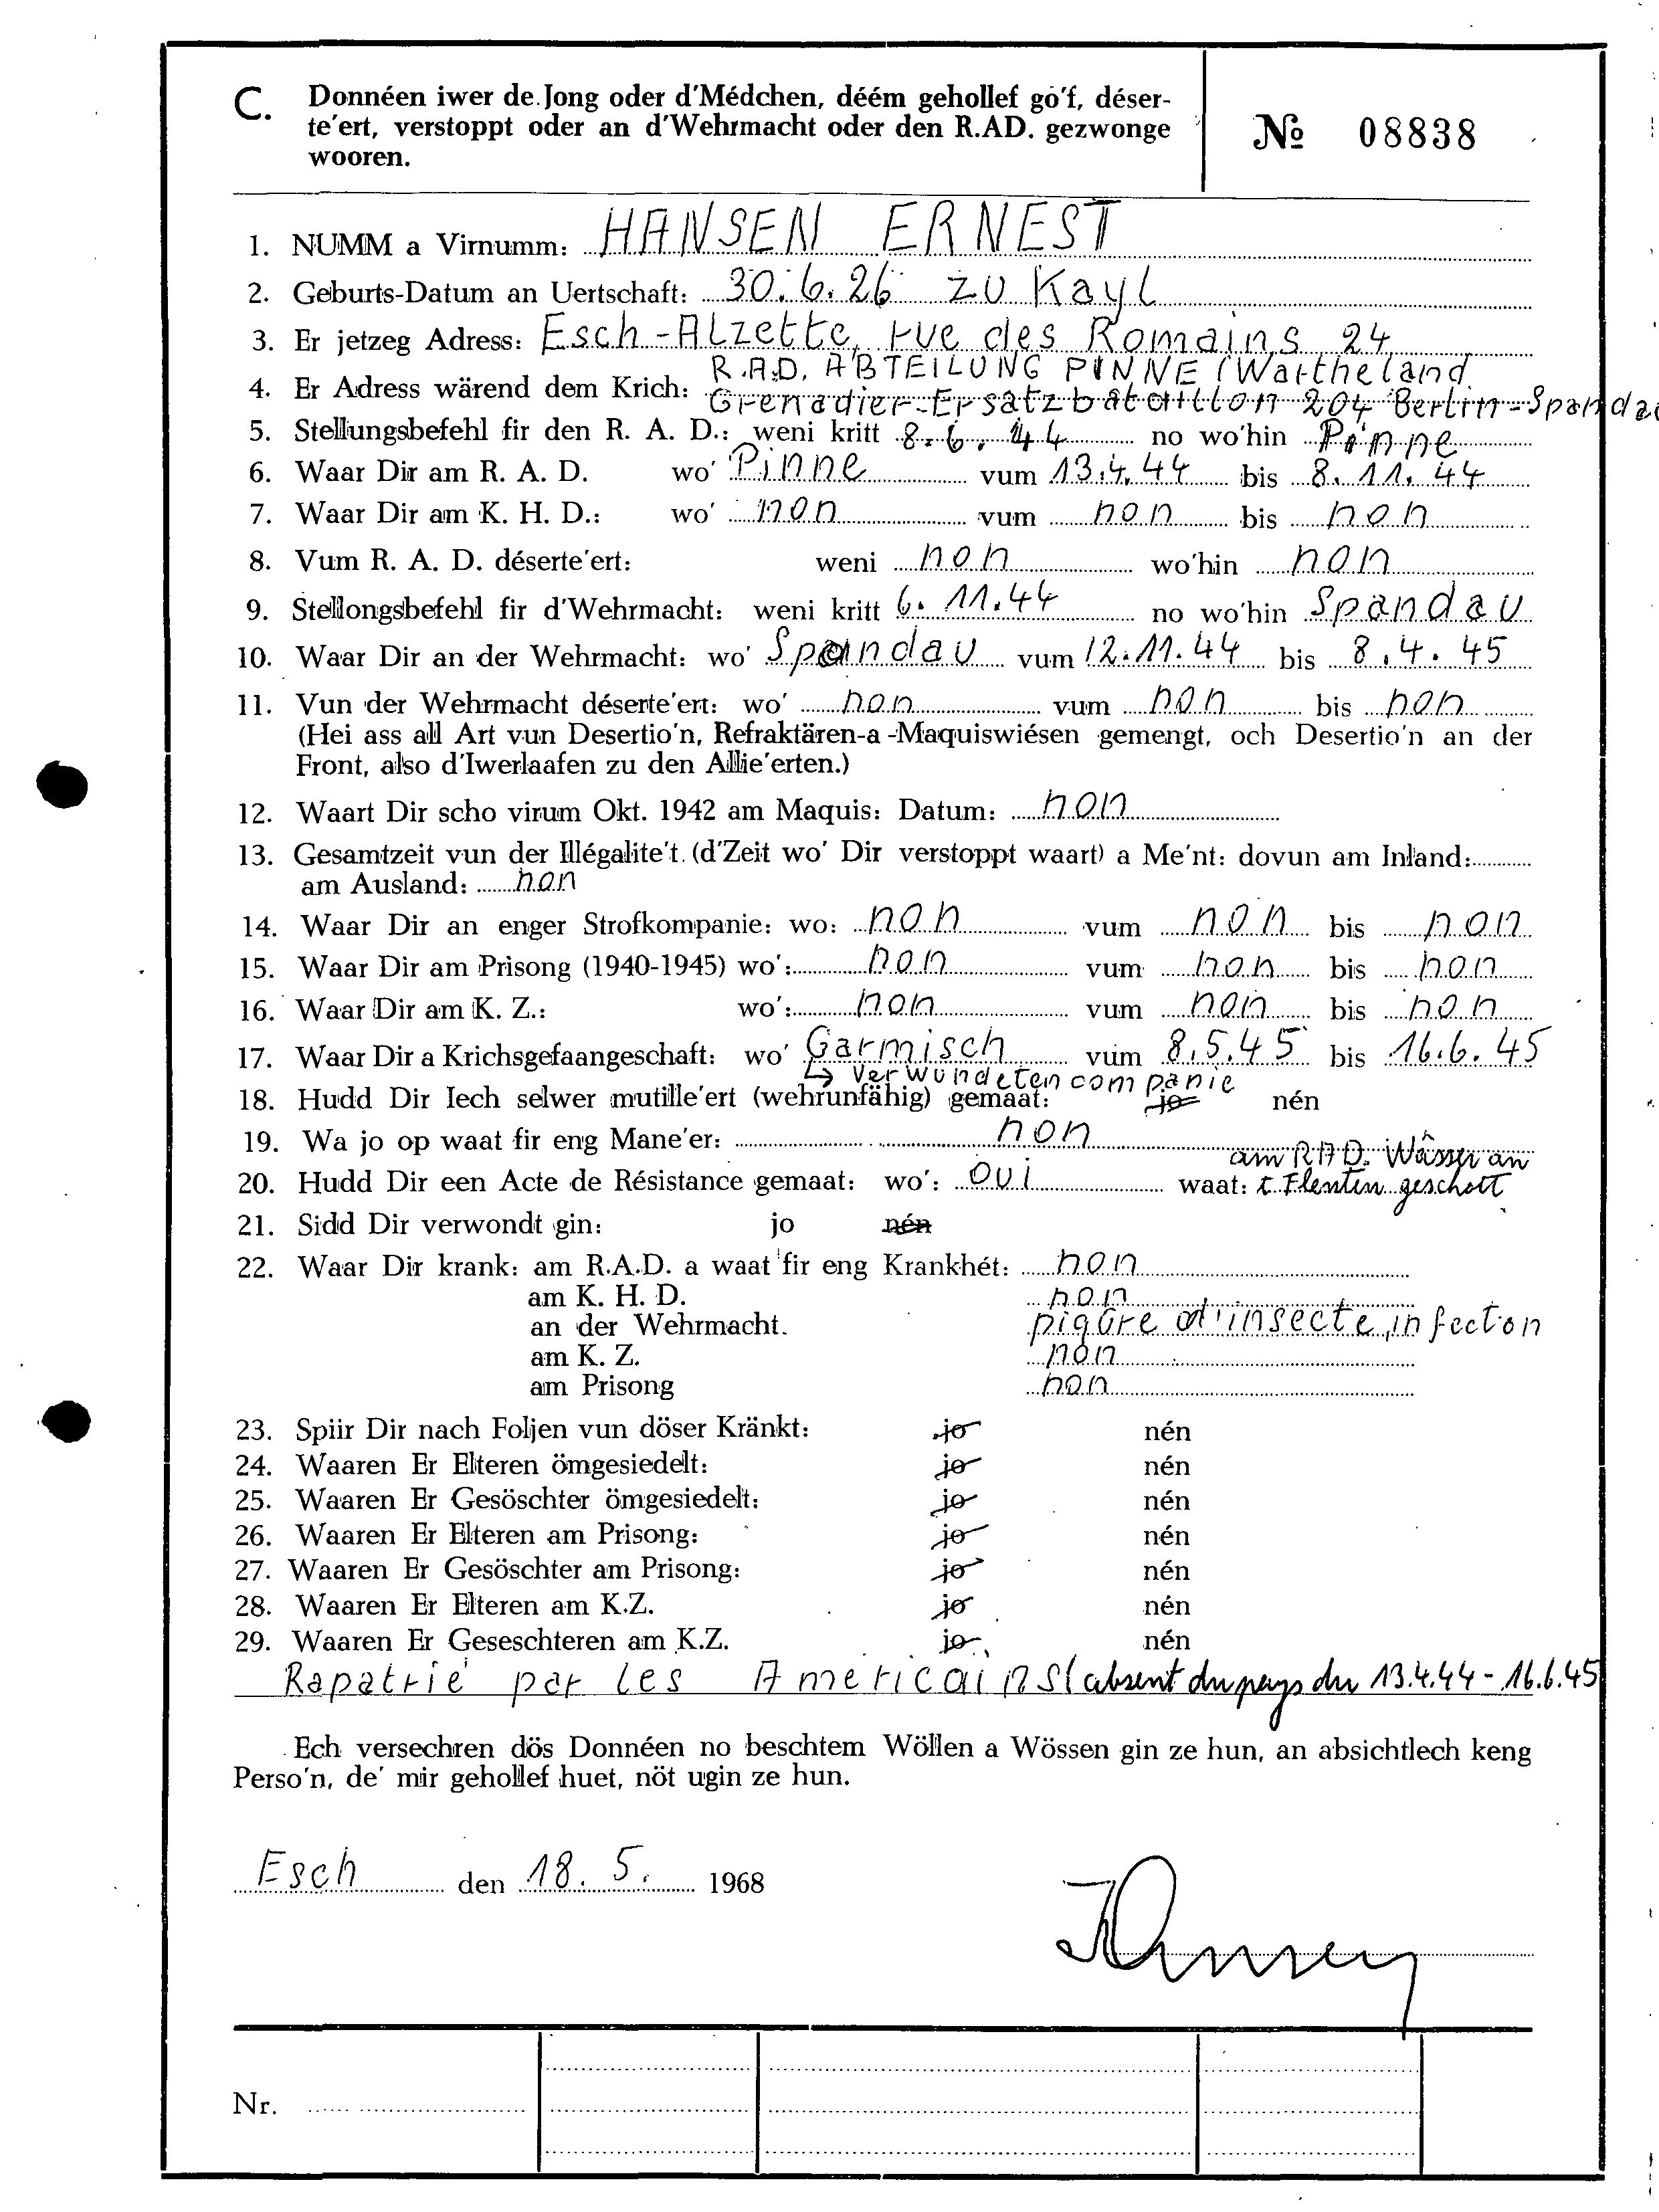 C. Donnéen iwer de Jong oder d'Médchen, déém gehollef go'f, déser-
te'ert, verstoppt oder an d'Wehrmacht oder den R.AD. gezwonge
wooren.
№ 08838
1. NUMM a Virnumm: HANSEN ERNEST
2. Geburts-Datum an Uertschaft: 30.6.26 zu Kayl
3. Er jetzeg Adress: Esch-Alzette, rue des Romains 24
R.A.D. ABTEILUNG PINNE (Wartheland
4. Er Adress wärend dem Krich: Grenadier-Ersatzbataillon 204 Berlin-Spandau
5. Stellungsbefehl fir den R. A. D.: weni kritt 8.6.44 no wo'hin Pinne
6. Waar Dir am R. A. D. wo' Pinne vum 13.4.44 bis 8.11.44
7. Waar Dir am K. H. D.: wo' non vum non bis non
8. Vum R. A. D. déserte'ert: weni non wo'hin non
9. Stellongsbefehl fir d'Wehrmacht: weni kritt 6.11.44 no wo'hin Spandau
10. Waar Dir an der Wehrmacht: wo' Spandau vum 12.11.44 bis 8.4.45
11. Vun der Wehrmacht déserte'ert: wo' non vum non bis non
(Hei ass all Art vun Desertio'n, Refraktären-a -Maquiswiésen gemengt, och Desertio'n an der
Front, also d'Iwerlaafen zu den Allie'erten.)
12. Waart Dir scho virum Okt. 1942 am Maquis: Datum: non
13. Gesamtzeit vun der Illégalite't. (d'Zeit wo' Dir verstoppt waart) a Me'nt: dovun am Inland:
am Ausland: non
14. Waar Dir an enger Strofkompanie: wo: non vum non bis non
15. Waar Dir am Prisong (1940-1945) wo': non vum non bis non
16. Waar Dir am K. Z.: wo': non vum non bis non
17. Waar Dir a Krichsgefaangeschaft: wo' Garmisch vum 8.5.45 bis 16.6.45
↳ Verwundetencompanie
18. Hudd Dir Iech selwer mutille'ert (wehrunfähig) gemaat: jo nén
19. Wa jo op waat fir eng Mane'er: non
am RAD. Wässer an
20. Hudd Dir een Acte de Résistance gemaat: wo': oui waat: t. Flenten geschott
21. Sidd Dir verwondt gin: jo nén
22. Waar Dir krank: am R.A.D. a waat fir eng Krankhét: non
am K. H. D. non
an der Wehrmacht. piqûre d'insecte, infecton
am K. Z. non
am Prisong non
23. Spiir Dir nach Foljen vun döser Kränkt: jo nén
24. Waaren Er Elteren ömgesiedelt: jo nén
25. Waaren Er Gesöschter ömgesiedelt: jo nén
26. Waaren Er Elteren am Prisong: jo nén
27. Waaren Er Gesöschter am Prisong: jo nén
28. Waaren Er Elteren am K.Z. jo nén
29. Waaren Er Geseschteren am K.Z. jo nén
Rapatrié par les Americains (absent du pays du 13.4.44 - 16.6.45
Ech versechren dös Donnéen no beschtem Wöllen a Wössen gin ze hun, an absichtlech keng
Perso'n, de' mir gehollef huet, nöt ugin ze hun.
Esch den 18. 5. 1968
Nr.